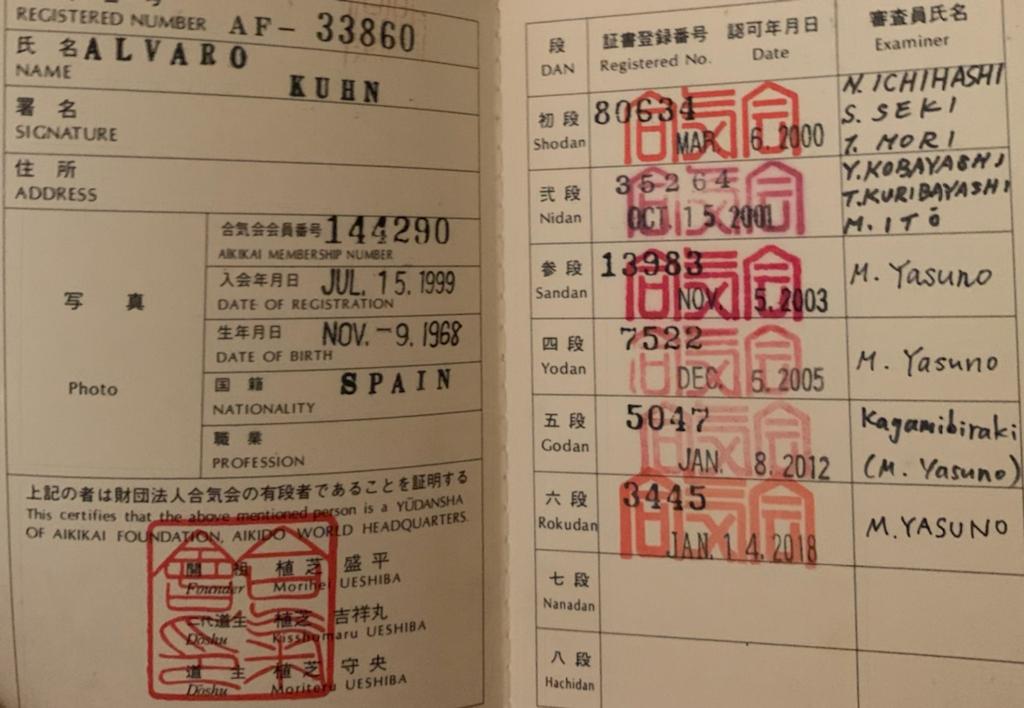 REGISTERED NUMBER AF- 33860
氏名 ALVARO
NAME KUHN
署名
SIGNATURE
住所
ADDRESS
写真
Photo
合気会会員番号 144290
AIKIKAI MEMBERSHIP NUMBER
入会年月日 JUL. 15. 1999
DATE OF REGISTRATION
生年月日 NOV. -9. 1968
DATE OF BIRTH
国籍 SPAIN
NATIONALITY
職業
PROFESSION
上記の者は財団法人合気会の有段者であることを証明する
This certifies that the above mentioned person is a YŪDANSHA
OF AIKIKAI FOUNDATION, AIKIDO WORLD HEADQUARTERS.
開祖 植芝盛平
Founder Morihei UESHIBA
二代道主 植芝吉祥丸
Dōshu Kisshomaru UESHIBA
道主 植芝守央
Dōshu Moriteru UESHIBA
段 証書登録番号 認可年月日 審査員氏名
DAN Registered No. Date Examiner
初段 80634 N. ICHIHASHI
S. SEKI
Shodan MAR. 6. 2000 T. MORI
弐段 35264 Y. KOBAYASHI
T. KURIBAYASHI
Nidan OCT. 15. 2001 M. ITŌ
参段 13983 M. Yasuno
Sandan NOV. 5. 2003
四段 7522 M. Yasuno
Yodan DEC. 5. 2005
五段 5047 Kagamibiraki
Godan JAN. 8. 2012 (M. Yasuno)
六段 3445 M. YASUNO
Rokudan JAN. 14. 2018
七段
Nanadan
八段
Hachidan